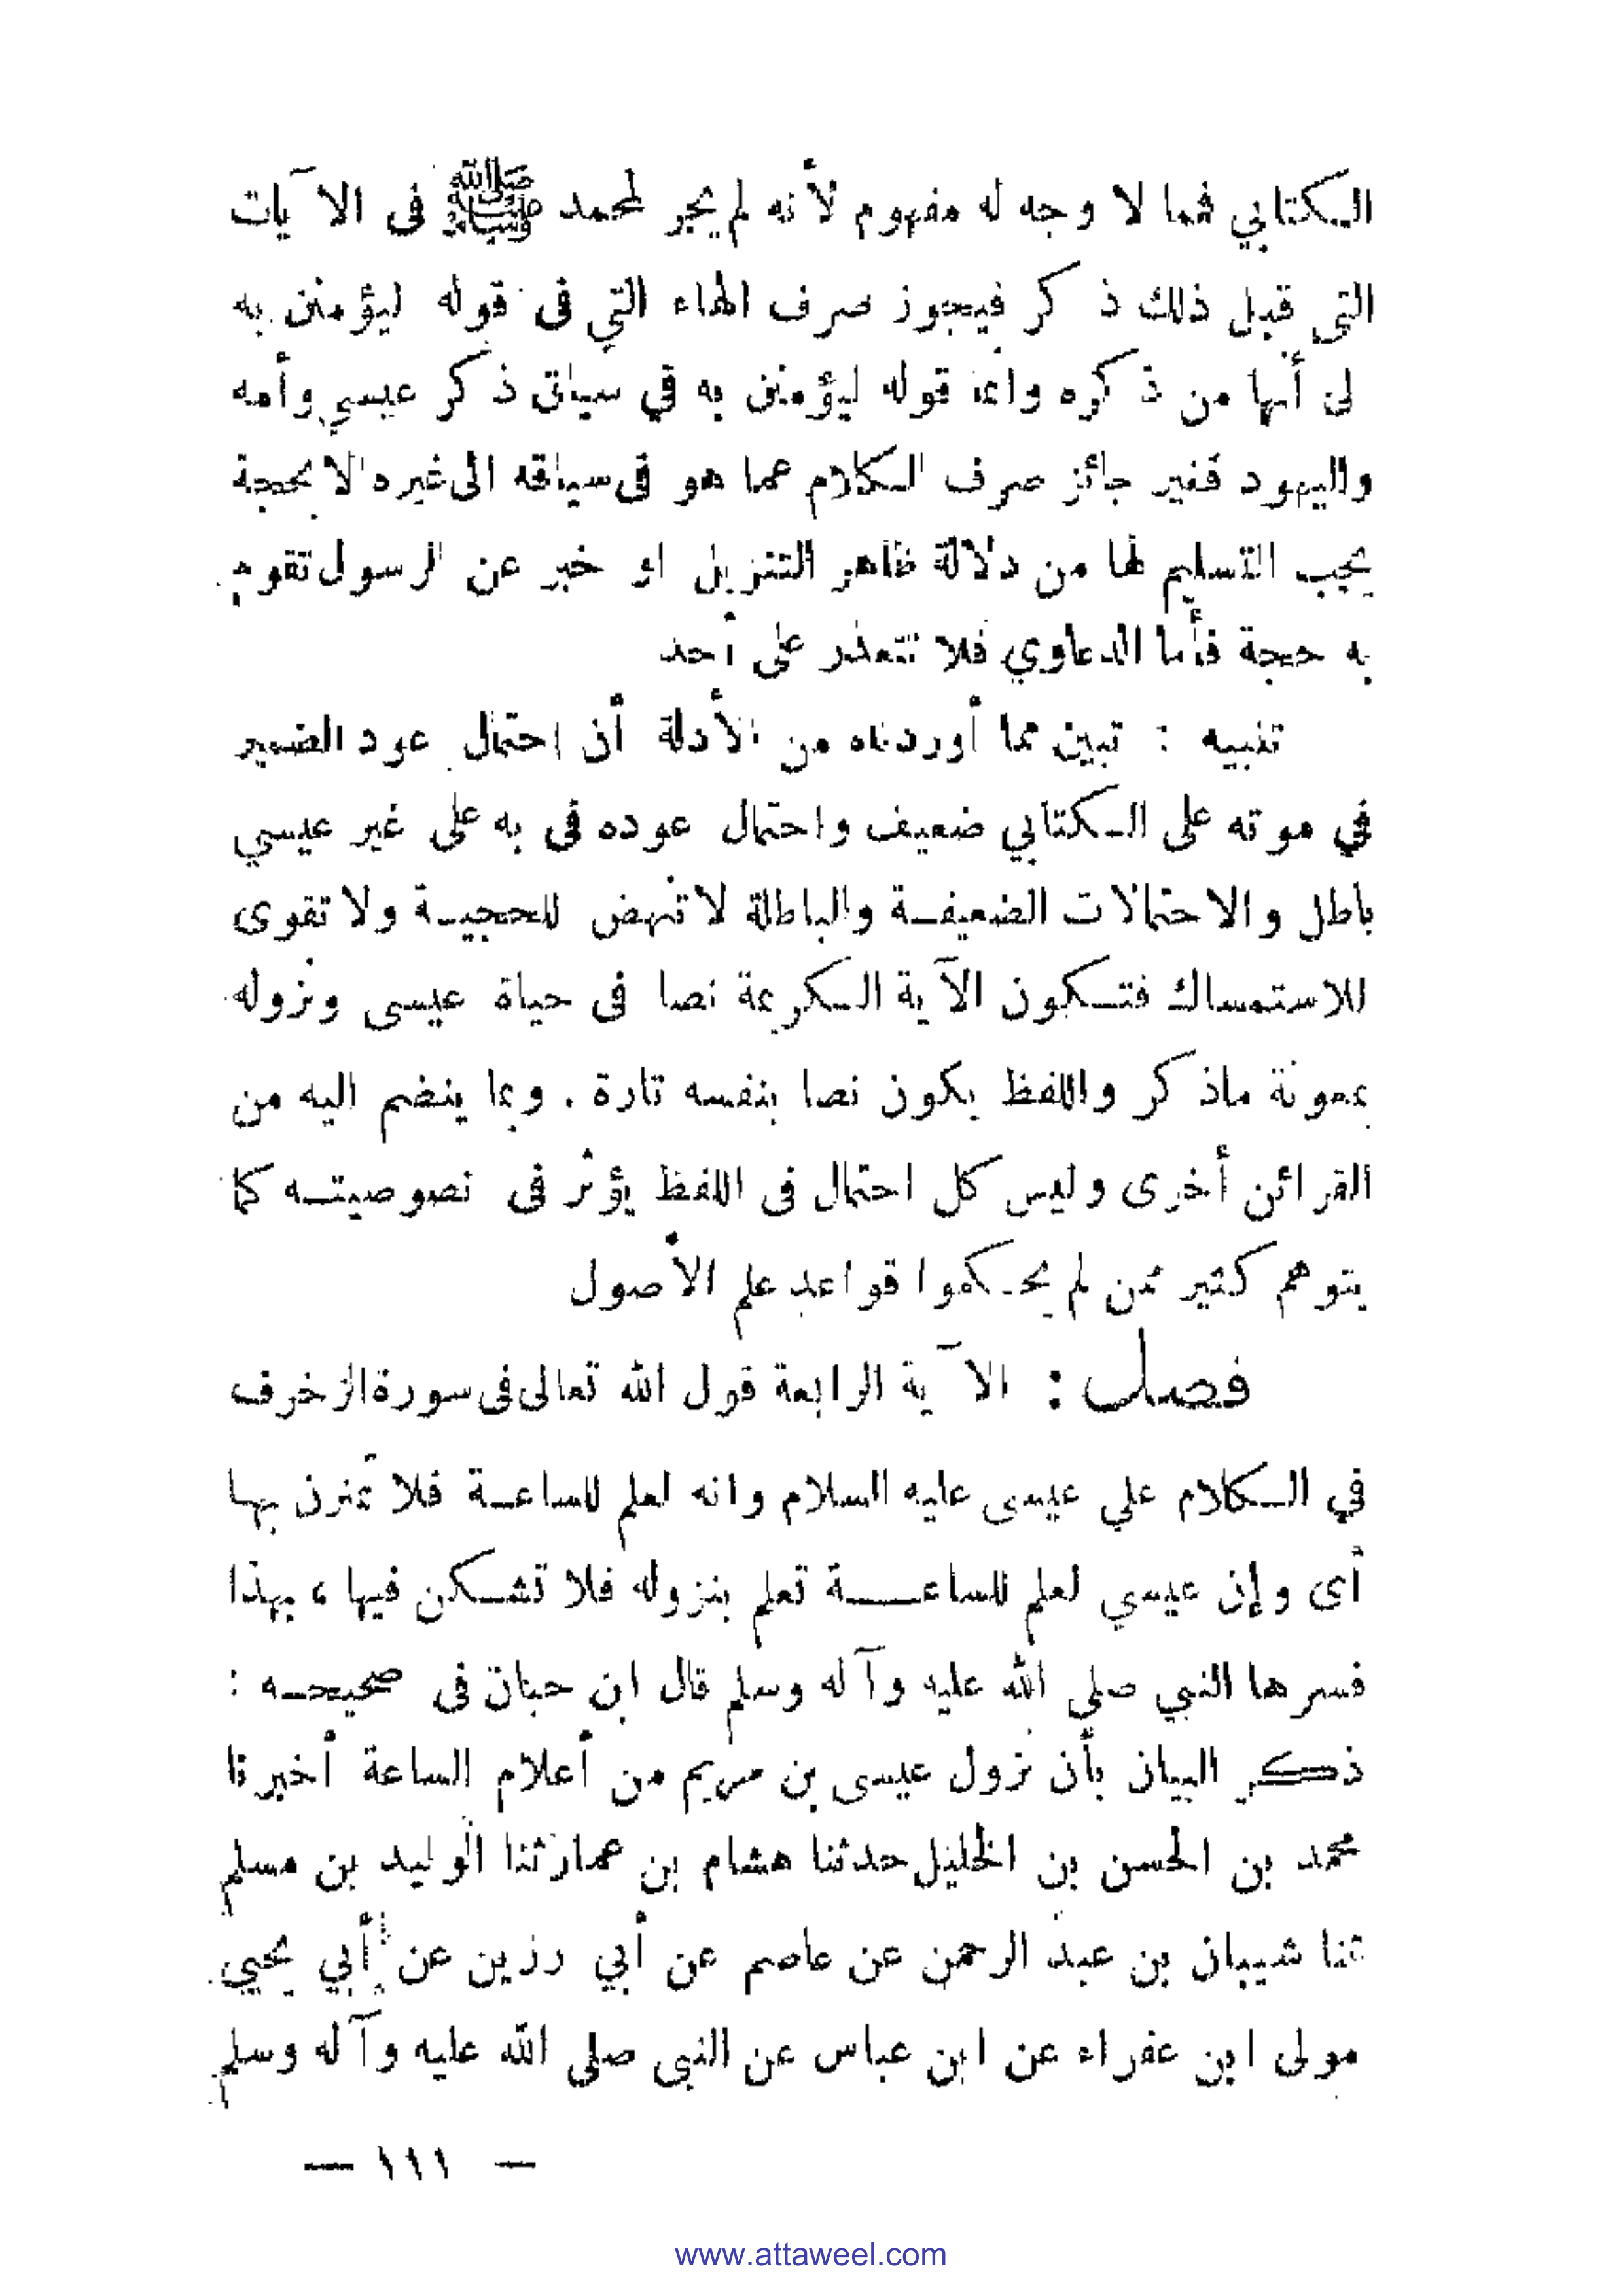 الكتابي فما لا وجه له مفهوم لأنه لم يجر لمحمد ﷺ فى الآيات
التى قبل ذلك ذكر فيجوز صرف الهاء التي فى قوله ليؤمنن به
لى أنها من ذكره وانما قوله ليؤمنن به في سياق ذكر عيسى وأمه
واليهود فغير جائز صرف الكلام عما هو فى سياقه الى غيره الا بحجة
يجب التسليم لها من دلالة ظاهر التنزيل او خبر عن الرسول تقوم
به حجة فأما الدعاوي فلا تتعذر على أحد
تنبيه : تبين مما أوردناه من الأدلة أن احتمال عود الضمير
في موته على الكتابي ضعيف واحتمال عوده فى به على غير عيسي
باطل والاحتمالات الضعيفة والباطلة لا تنهض للحجية ولا تقوى
للاستمساك فتكون الآية الكريمة نصا فى حياة عيسى ونزوله
بمعونة ماذكر واللفظ يكون نصا بنفسه تارة . وبما ينضم اليه من
القرائن أخرى وليس كل احتمال فى اللفظ يؤثر فى نصوصيته كما
يتوهم كثير ممن لم يحكموا قواعد علم الأصول
فصل : الآية الرابعة قول الله تعالى فى سورة الزخرف
في الكلام علي عيسى عليه السلام وانه لعلم للساعة فلا تمترن بها
أى وإن عيسي لعلم للساعة تعلم بنزوله فلا تشكن فيها ، بهذا
فسرها النبي صلى الله عليه وآله وسلم قال ابن حبان فى صحيحه :
ذكر البيان بأن نزول عيسى بن مريم من أعلام الساعة أخبرنا
محمد بن الحسن بن الخليل حدثنا هشام بن عمار ثنا الوليد بن مسلم
ثنا شيبان بن عبد الرحمن عن عاصم عن أبي رزين عن أبي يحيي
مولى ابن عفراء عن ابن عباس عن النبى صلى الله عليه وآله وسلم
— ١١١ —
www.attaweel.com